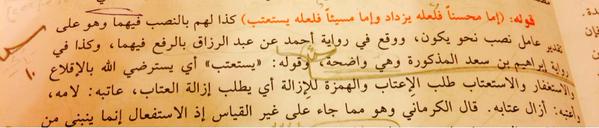 قوله: (إما محسناً فلعله يزداد وإما مسيئاً فلعله يستعتب) كذا لهم بالنصب فيهما وهو على
تقدير عامل نصب نحو يكون، ووقع في رواية أحمد عن عبد الرزاق بالرفع فيهما، وكذا في
رواية إبراهيم بن سعد المذكورة وهي واضحة، وقوله: «يستعتب» أي يسترضي الله بالإقلاع
والاستغفار والاستعتاب طلب الإعتاب والهمزة للإزالة أي يطلب إزالة العتاب، عاتبه: لامه،
وأعتبه: أزال عتابه. قال الكرماني وهو مما جاء على غير القياس إذ الاستفعال إنما ينبني من